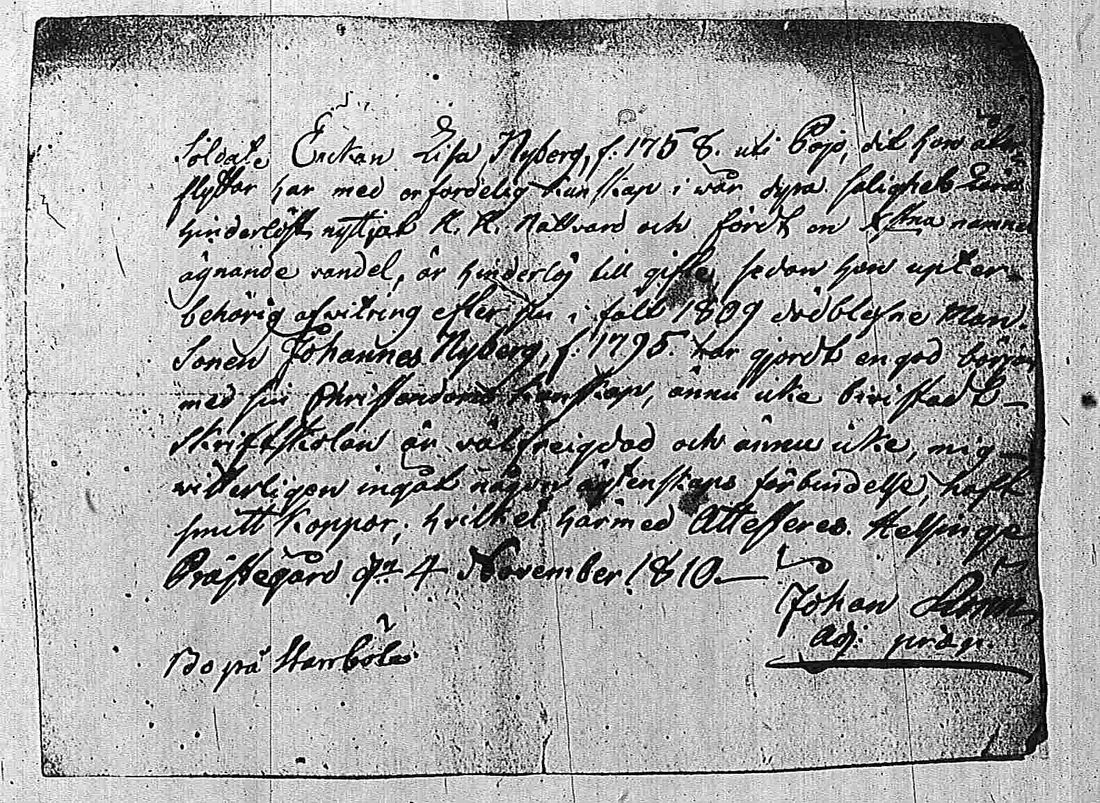 Soldate Enckan Lisa Nyberg, f. 1758. uti Pojo, dit hon åter
flyttar har med erforderlig kunskap i vår dyra salighets Lära
hinderlöst nyttjat H. H. Nattvard och fördt en Xstna namnet
ägnande vandel, är hinderlös till gifte, sedan hon upter
behörig afwitring efter sin i fält 1809 dödblefne Man.
Sonen Johannes Nyberg, f. 1795. har gjordt en god början
med sin Christendoms kunskap, ännu icke bevistadt
Skriftskolan är välfreigdad och ännu icke, mig
vitterligen ingåt någon ägtenskaps förbindelse, haft
smitt Koppor, hvilket härmed Attesteres. Helsinge
Prästegård dn 4 November 1810.
Johan
Adj. præp.
Bo på Stambôle